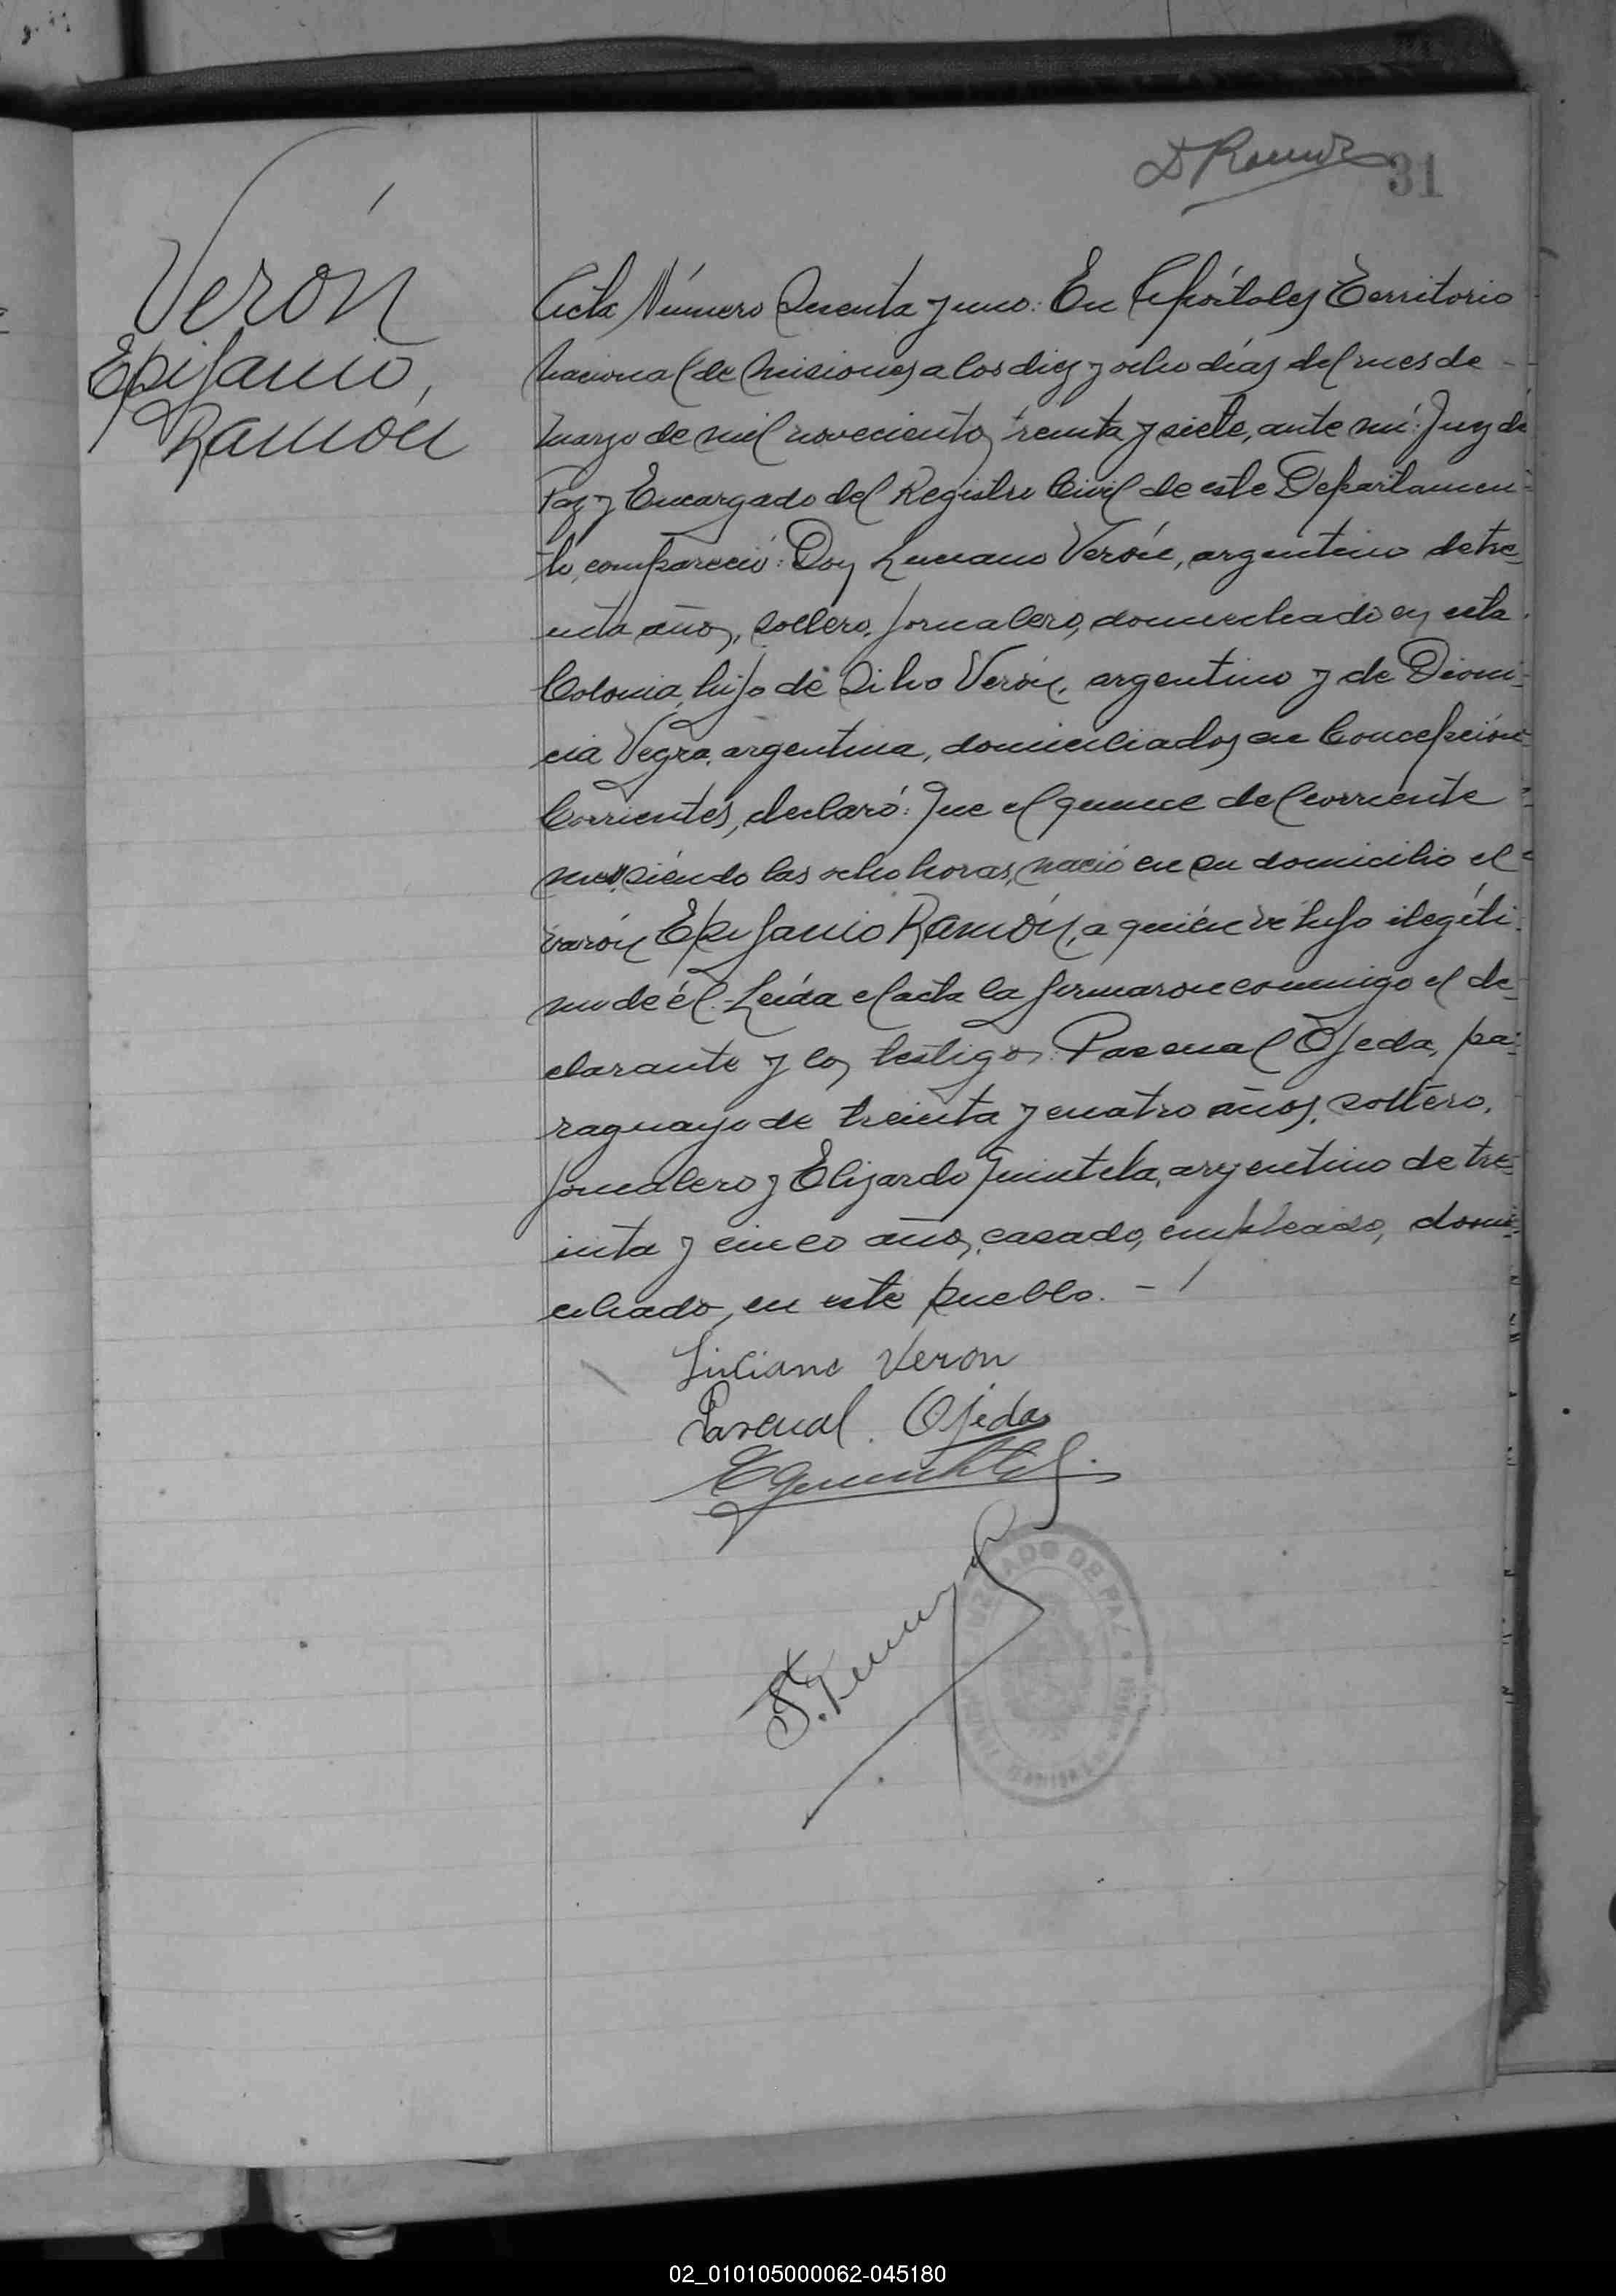 31
Verón
Epifanio,
Ramón
Acta Número Sesenta y uno: En Apóstoles Territorio
Nacional de Misiones a los diez y ocho días del mes de -
marzo de mil novecientos treinta y siete, ante mí: Juez de
Paz y Encargado del Registro Civil de este Departamen-
to, compareció: Don Luciano Verón, argentino de tre-
inta años, soltero, jornalero, domiciliado en esta
Colonia, hijo de Silvo Verón, argentino y de Dioni-
cia Vegra, argentina, domiciliados en Concepción
Corrientes, declaró: Que el quince del corriente
mes, siendo las ocho horas, nació en su domicilio el
varón Epifanio Ramón, a quién vé hijo ilegíti-
mo de él.- Leída el acta la firmaron conmigo el de-
clarante y los testigos: Pascual Ojeda, pa-
raguayo de treinta y cuatro años, soltero,
jornalero y Elizardo Quintela, argentino de tre-
inta y cinco años, casado, empleado, domi-
ciliados en este pueblo. -
Luciano Veron
Pascual. Ojeda
JUZGADO DE PAZ
02_010105000062-045180